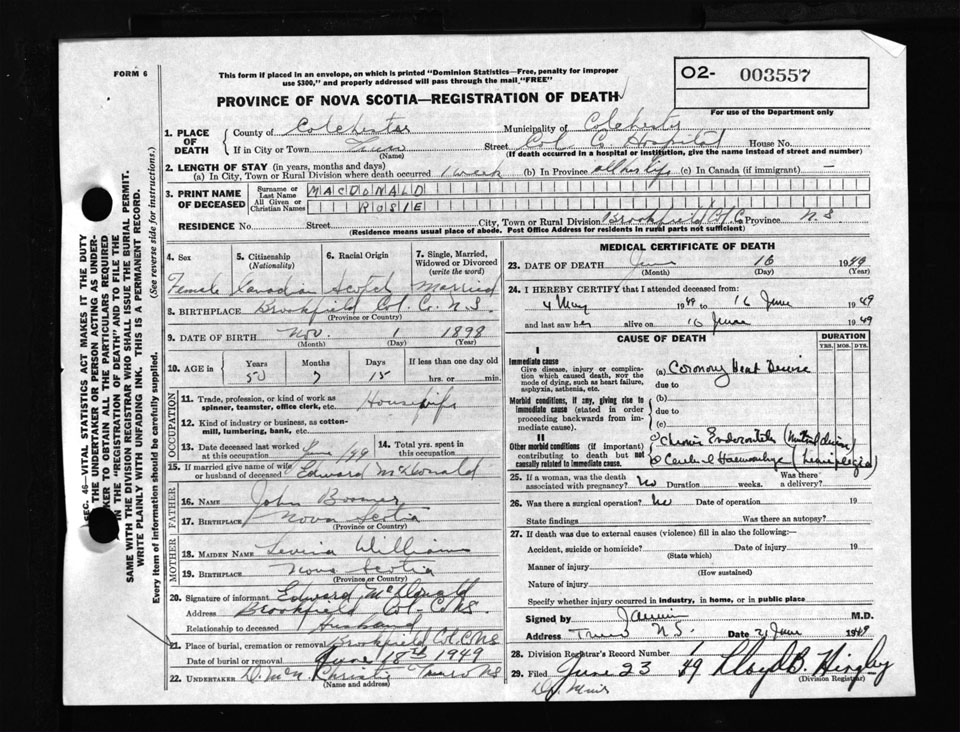 FORM 6
This form if placed in an envelope, on which is printed "Dominion Statistics—Free, penalty for improper
use $300," and properly addressed will pass through the mail, "FREE"
O2- 003557
For use of the Department only
PROVINCE OF NOVA SCOTIA—REGISTRATION OF DEATH
1. PLACE OF DEATH
County of Colchester Municipality of Colchester
If in City or Town Truro Street Col. C. Hospital House No.
(Name) (If death occurred in a hospital or institution, give the name instead of street and number)
2. LENGTH OF STAY (in years, months and days)
(a) In City, Town or Rural Division where death occurred 1 week (b) In Province all her life (c) In Canada (if immigrant) —
3. PRINT NAME OF DECEASED
Surname or Last Name MACDONALD
All Given or Christian Names ROSIE
RESIDENCE No. Street City, Town or Rural Division Brookfield Col. C Province N.S.
(Residence means usual place of abode. Post Office Address for residents in rural parts not sufficient)
4. Sex 5. Citizenship (Nationality) 6. Racial Origin 7. Single, Married, Widowed or Divorced (write the word)
Female Canadian Scotch Married
8. BIRTHPLACE Brookfield Col. C. N.S.
(Province or Country)
9. DATE OF BIRTH Nov 1 1898
(Month) (Day) (Year)
10. AGE in Years Months Days If less than one day old
50 7 15 hrs. or min.
OCCUPATION
11. Trade, profession, or kind of work as spinner, teamster, office clerk, etc. Housewife
12. Kind of industry or business, as cotton-mill, lumbering, bank, etc.
13. Date deceased last worked at this occupation June/49 14. Total yrs. spent in this occupation
15. If married give name of wife or husband of deceased Edward McDonald
FATHER
16. NAME John Boomer
17. BIRTHPLACE Nova Scotia
(Province or Country)
MOTHER
18. MAIDEN NAME Levina Williams
19. BIRTHPLACE Nova Scotia
(Province or Country)
20. Signature of informant Edward McDonald
Address Brookfield Col. C. N.S.
Relationship to deceased Husband
21. Place of burial, cremation or removal Brookfield Col. C. N.S
Date of burial or removal June 18th 1949
22. UNDERTAKER D. McN. Christie Truro N.S
(Name and address)
MEDICAL CERTIFICATE OF DEATH
23. DATE OF DEATH June 16 1949
(Month) (Day) (Year)
24. I HEREBY CERTIFY that I attended deceased from:
4 May 1949 to 16 June 1949
and last saw her alive on 10 June 1949
CAUSE OF DEATH DURATION
YRS. MOS. DYS.
I
Immediate cause
Give disease, injury or complication which caused death, NOT the mode of dying, such as heart failure, asphyxia, asthenia, etc.
(a) Coronary Heart Disease
due to
Morbid conditions, if any, giving rise to immediate cause (stated in order proceeding backwards from immediate cause).
(b)
due to
(c)
II
Other morbid conditions (if important) contributing to death but not causally related to immediate cause.
Chronic Endocarditis (Mitral disease)
Cerebral Haemorrhage (hemiplegia)
25. If a woman, was the death associated with pregnancy? No Duration weeks. Was there a delivery?
26. Was there a surgical operation? No Date of operation 19
State findings Was there an autopsy?
27. If death was due to external causes (violence) fill in also the following:
Accident, suicide or homicide? Date of injury 19
(State which)
Manner of injury
(How sustained)
Nature of injury
Specify whether injury occurred in industry, in home, or in public place
Signed by M.D.
Address Truro N.S. Date 21 June 1949
28. Division Registrar's Record Number 1
29. Filed June 23 49 Lloyd B. Hingley
(Division Registrar)
SEC. 46—VITAL STATISTICS ACT MAKES IT THE DUTY
OF THE UNDERTAKER OR PERSON ACTING AS UNDER-
TAKER TO OBTAIN ALL THE PARTICULARS REQUIRED
IN THE "REGISTRATION OF DEATH" AND TO FILE THE
SAME WITH THE DIVISION REGISTRAR WHO SHALL ISSUE THE BURIAL PERMIT.
WRITE PLAINLY WITH UNFADING INK. THIS IS A PERMANENT RECORD.
Every item of information should be carefully supplied. (See reverse side for instructions.)